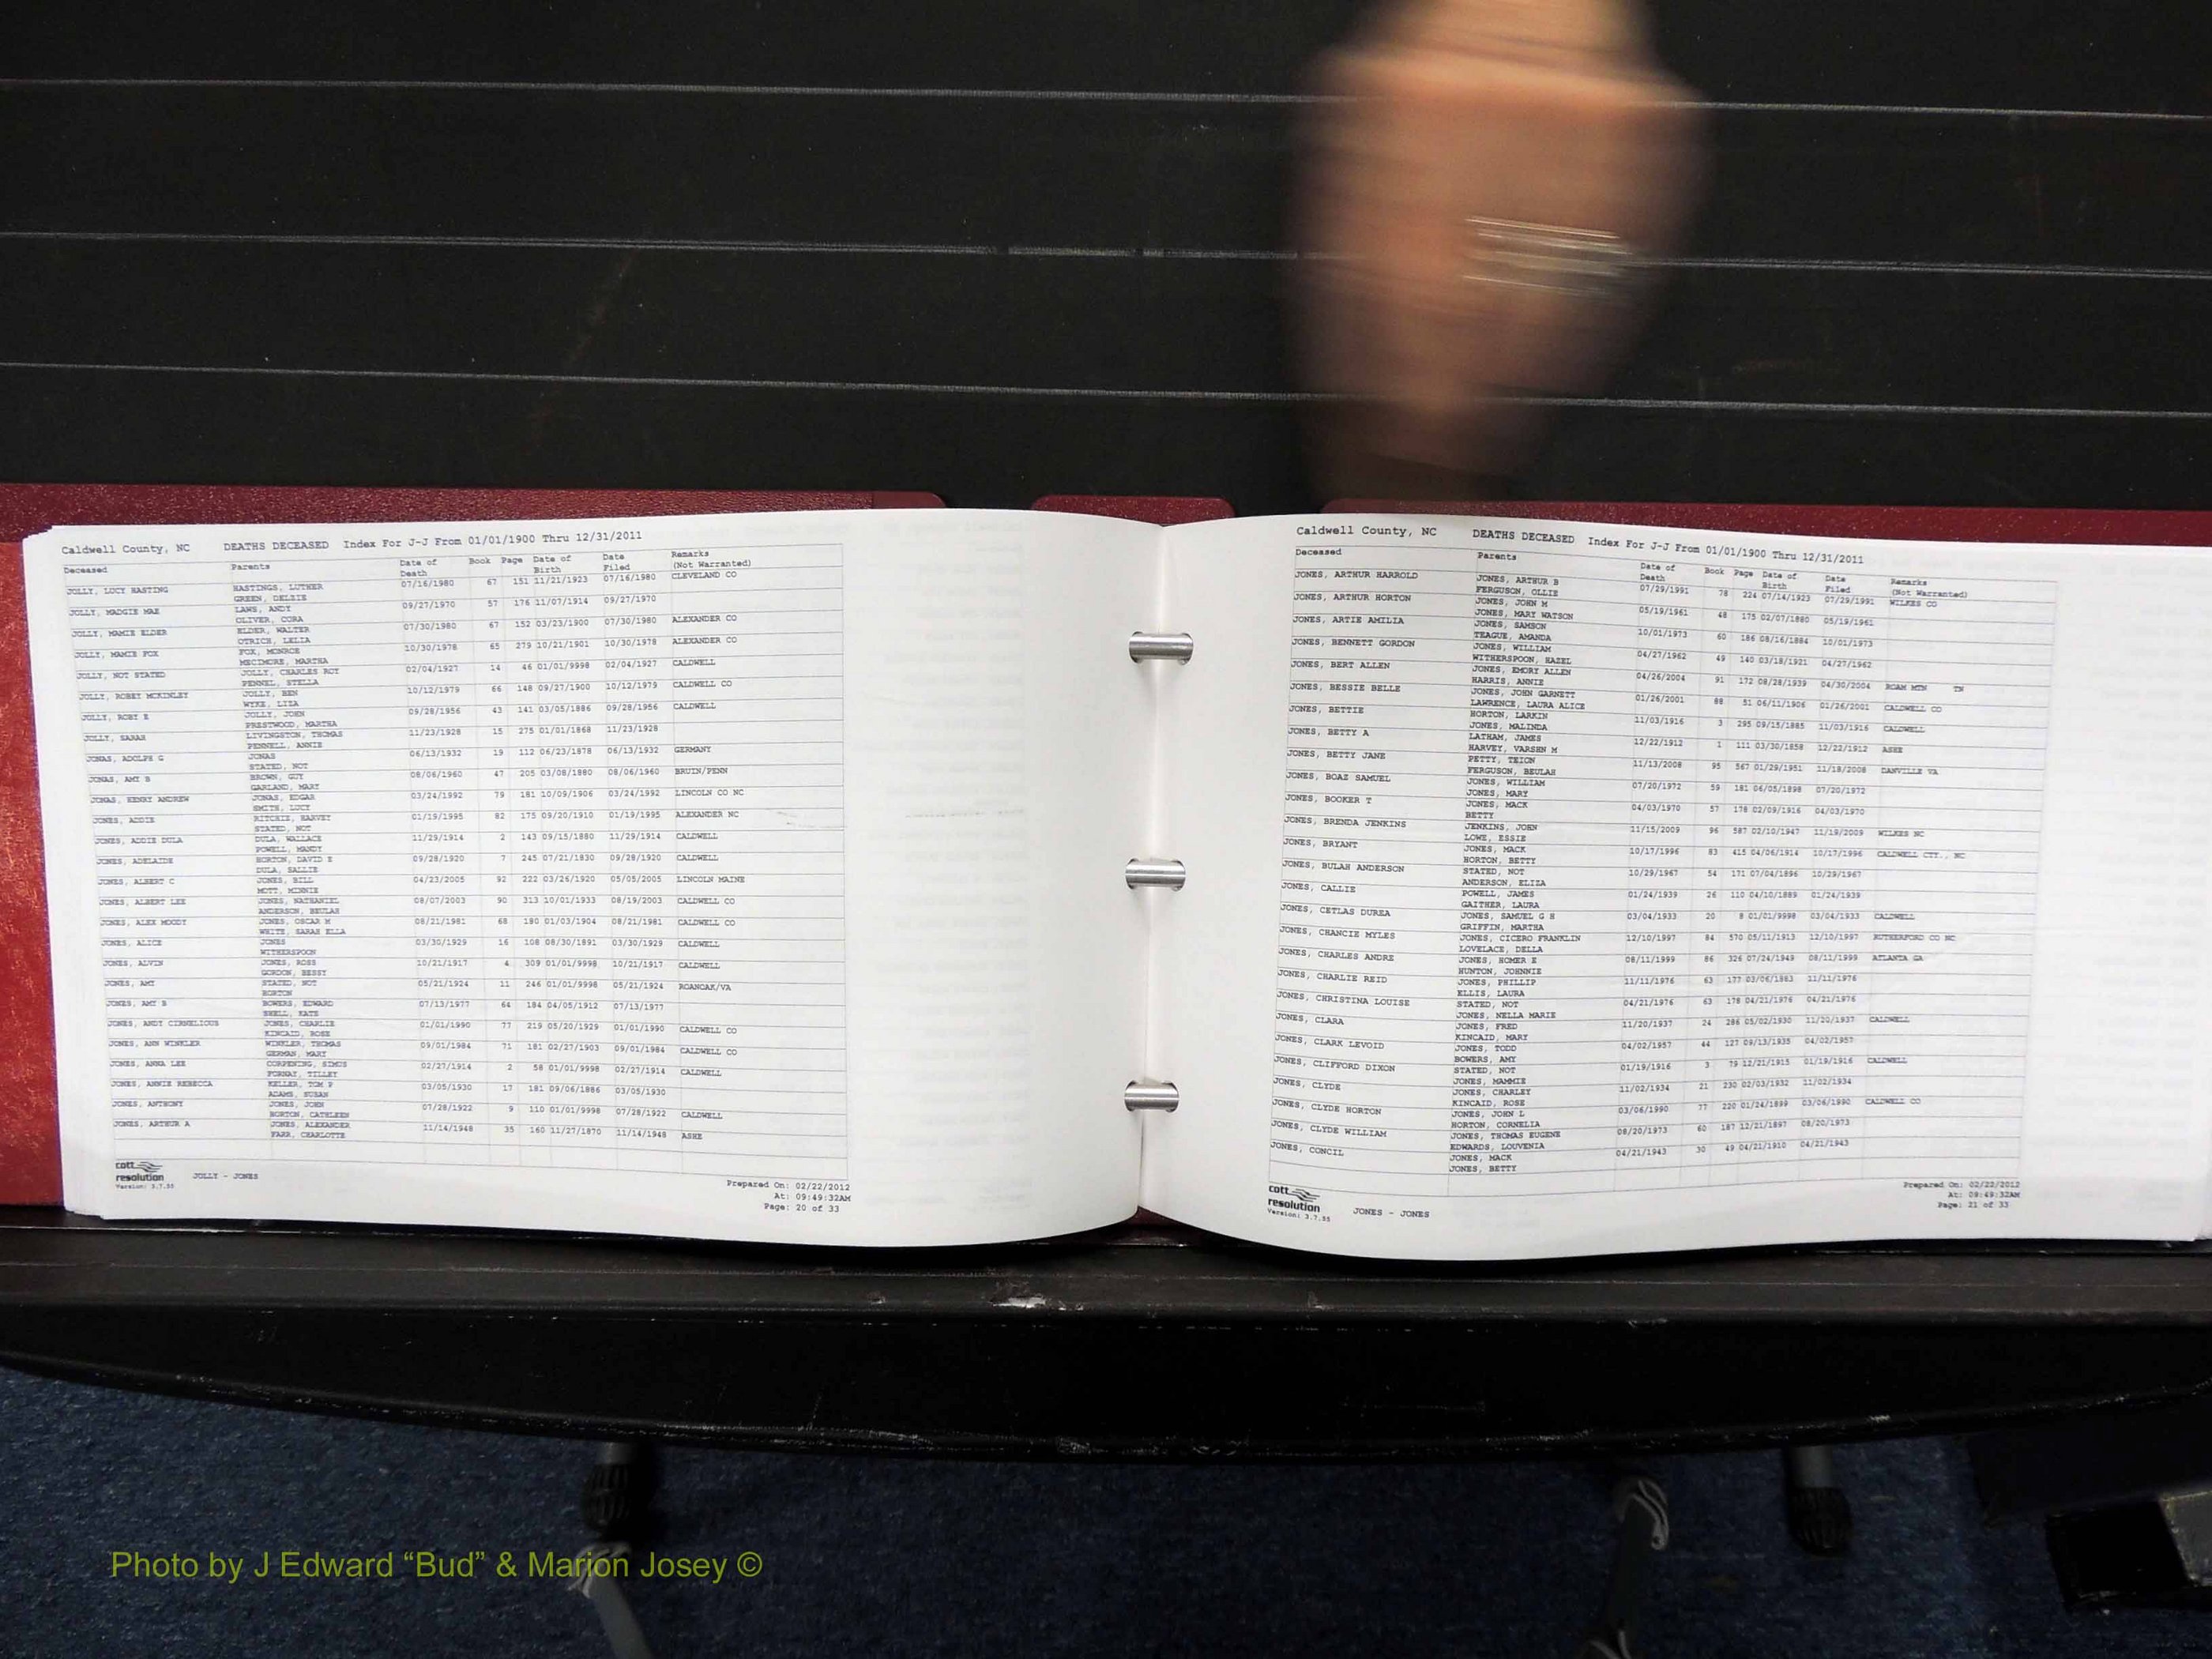 Caldwell County, NC DEATHS DECEASED Index For J-J From 01/01/1900 Thru 12/31/2011
Deceased Parents Date of Death Book Page Date of Birth Date Filed Remarks (Not Warranted)
JOLLY, LUCY HASTING HASTINGS, LUTHER 07/16/1980 67 151 11/21/1923 07/16/1980 CLEVELAND CO
GREEN, DELZIE
JOLLY, MADGIE MAE LAWS, ANDY 09/27/1970 57 176 11/07/1914 09/27/1970
OLIVER, CORA
JOLLY, MAMIE ELDER ELDER, WALTER 07/30/1980 67 152 03/23/1900 07/30/1980 ALEXANDER CO
OTRICH, LELIA
JOLLY, MAMIE FOX FOX, MONROE 10/30/1978 65 279 10/21/1901 10/30/1978 ALEXANDER CO
MECIMORE, MARTHA
JOLLY, NOT STATED JOLLY, CHARLES ROY 02/04/1927 14 46 01/01/9998 02/04/1927 CALDWELL
PENNEL, STELLA
JOLLY, ROBEY MCKINLEY JOLLY, BEN 10/12/1979 66 148 09/27/1900 10/12/1979 CALDWELL CO
WYKE, LIZA
JOLLY, ROBY E JOLLY, JOHN 09/28/1956 43 141 03/05/1886 09/28/1956 CALDWELL
PRESTWOOD, MARTHA
JOLLY, SARAH LIVINGSTON, THOMAS 11/23/1928 15 275 01/01/1868 11/23/1928
PENNELL, ANNIE
JONAS, ADOLPH G JONAS 06/13/1932 19 112 06/23/1878 06/13/1932 GERMANY
STATED, NOT
JONAS, AMY B BROWN, GUY 08/06/1960 47 205 03/08/1880 08/06/1960 BRUIN/PENN
GARLAND, MARY
JONAS, HENRY ANDREW JONAS, EDGAR 03/24/1992 79 181 10/09/1906 03/24/1992 LINCOLN CO NC
SMITH, LUCY
JONES, ADDIE RITCHIE, HARVEY 01/19/1995 82 175 09/20/1910 01/19/1995 ALEXANDER NC
STATED, NOT
JONES, ADDIE DULA DULA, WALLACE 11/29/1914 2 143 09/15/1880 11/29/1914 CALDWELL
POWELL, MANDY
JONES, ADELAIDE HORTON, DAVID E 09/28/1920 7 245 07/21/1830 09/28/1920 CALDWELL
DULA, SALLIE
JONES, ALBERT C JONES, BILL 04/23/2005 92 222 03/26/1920 05/05/2005 LINCOLN MAINE
MOTT, MINNIE
JONES, ALBERT LEE JONES, NATHANIEL 08/07/2003 90 313 10/01/1933 08/19/2003 CALDWELL CO
ANDERSON, BEULAH
JONES, ALEX MOODY JONES, OSCAR M 08/21/1981 68 190 01/03/1904 08/21/1981 CALDWELL CO
WHITE, SARAH ELLA
JONES, ALICE JONES 03/30/1929 16 108 08/30/1891 03/30/1929 CALDWELL
WITHERSPOON
JONES, ALVIN JONES, ROSS 10/21/1917 4 309 01/01/9998 10/21/1917 CALDWELL
GORDON, BESSY
JONES, AMY STATED, NOT 05/21/1924 11 246 01/01/9998 05/21/1924 ROANOAK/VA
HORTON
JONES, AMY B BOWERS, EDWARD 07/13/1977 64 184 04/05/1912 07/13/1977
SHELL, KATE
JONES, ANDY CIRNELIOUS JONES, CHARLIE 01/01/1990 77 219 05/20/1929 01/01/1990 CALDWELL CO
KINCAID, ROSE
JONES, ANN WINKLER WINKLER, THOMAS 09/01/1984 71 181 02/27/1903 09/01/1984 CALDWELL CO
GERMAN, MARY
JONES, ANNA LEE CORPENING, SIMUS 02/27/1914 2 58 01/01/9998 02/27/1914 CALDWELL
FORNAY, TILLEY
JONES, ANNIE REBECCA KELLER, TOM P 03/05/1930 17 181 09/06/1886 03/05/1930
ADAMS, SUSAN
JONES, ANTHONY JONES, JOHN 07/28/1922 9 110 01/01/9998 07/28/1922 CALDWELL
HORTON, CATHLEEN
JONES, ARTHUR A JONES, ALEXANDER 11/14/1948 35 160 11/27/1870 11/14/1948 ASHE
FARR, CHARLOTTE
cott
resolution
Version: 3.7.55
JOLLY - JONES
Prepared On: 02/22/2012
At: 09:49:32AM
Page: 20 of 33
Caldwell County, NC DEATHS DECEASED Index For J-J From 01/01/1900 Thru 12/31/2011
Deceased Parents Date of Death Book Page Date of Birth Date Filed Remarks (Not Warranted)
JONES, ARTHUR HARROLD JONES, ARTHUR B 07/29/1991 78 224 07/14/1923 07/29/1991 WILKES CO
FERGUSON, OLLIE
JONES, ARTHUR HORTON JONES, JOHN M 05/19/1961 48 175 02/07/1880 05/19/1961
JONES, MARY WATSON
JONES, ARTIE AMILIA JONES, SAMSON 10/01/1973 60 186 08/16/1884 10/01/1973
TEAGUE, AMANDA
JONES, BENNETT GORDON JONES, WILLIAM 04/27/1962 49 140 03/18/1921 04/27/1962
WITHERSPOON, HAZEL
JONES, BERT ALLEN JONES, EMORY ALLEN 04/26/2004 91 172 08/28/1939 04/30/2004 ROAM MTN TN
HARRIS, ANNIE
JONES, BESSIE BELLE JONES, JOHN GARNETT 01/26/2001 88 51 06/11/1906 01/26/2001 CALDWELL CO
LAWRENCE, LAURA ALICE
JONES, BETTIE HORTON, LARKIN 11/03/1916 3 295 09/15/1885 11/03/1916 CALDWELL
JONES, MALINDA
JONES, BETTY A LATHAM, JAMES 12/22/1912 1 111 03/30/1858 12/22/1912 ASHE
HARVEY, VARSHN M
JONES, BETTY JANE PETTY, TEION 11/13/2008 95 567 01/29/1951 11/18/2008 DANVILLE VA
FERGUSON, BEULAH
JONES, BOAZ SAMUEL JONES, WILLIAM 07/20/1972 59 181 06/05/1898 07/20/1972
JONES, MARY
JONES, BOOKER T JONES, MACK 04/03/1970 57 178 02/09/1916 04/03/1970
BETTY
JONES, BRENDA JENKINS JENKINS, JOHN 11/15/2009 96 587 02/10/1947 11/19/2009 WILKES NC
LOWE, ESSIE
JONES, BRYANT JONES, MACK 10/17/1996 83 415 04/06/1914 10/17/1996 CALDWELL CTY., NC
HORTON, BETTY
JONES, BULAH ANDERSON STATED, NOT 10/29/1967 54 171 07/04/1896 10/29/1967
ANDERSON, ELIZA
JONES, CALLIE POWELL, JAMES 01/24/1939 26 110 04/10/1889 01/24/1939
GAITHER, LAURA
JONES, CETLAS DUREA JONES, SAMUEL G H 03/04/1933 20 8 01/01/9998 03/04/1933 CALDWELL
GRIFFIN, MARTHA
JONES, CHANCIE MYLES JONES, CICERO FRANKLIN 12/10/1997 84 570 05/11/1913 12/10/1997 RUTHERFORD CO NC
LOVELACE, DELLA
JONES, CHARLES ANDRE JONES, HOMER E 08/11/1999 86 326 07/24/1949 08/11/1999 ATLANTA GA
HUNTON, JOHNNIE
JONES, CHARLIE REID JONES, PHILLIP 11/11/1976 63 177 03/06/1883 11/11/1976
ELLIS, LAURA
JONES, CHRISTINA LOUISE STATED, NOT 04/21/1976 63 178 04/21/1976 04/21/1976
JONES, NELLA MARIE
JONES, CLARA JONES, FRED 11/20/1937 24 286 05/02/1930 11/20/1937 CALDWELL
KINCAID, MARY
JONES, CLARK LEVOID JONES, TODD 04/02/1957 44 127 09/13/1935 04/02/1957
BOWERS, AMY
JONES, CLIFFORD DIXON STATED, NOT 01/19/1916 3 79 12/21/1915 01/19/1916 CALDWELL
JONES, MAMMIE
JONES, CLYDE JONES, CHARLEY 11/02/1934 21 230 02/03/1932 11/02/1934
KINCAID, ROSE
JONES, CLYDE HORTON JONES, JOHN L 03/06/1990 77 220 01/24/1899 03/06/1990 CALDWELL CO
HORTON, CORNELIA
JONES, CLYDE WILLIAM JONES, THOMAS EUGENE 08/20/1973 60 187 12/21/1897 08/20/1973
EDWARDS, LOUVENIA
JONES, CONCIL JONES, MACK 04/21/1943 30 49 04/21/1910 04/21/1943
JONES, BETTY
cott
resolution
Version: 3.7.55
JONES - JONES
Prepared On: 02/22/2012
At: 09:49:32AM
Page: 21 of 33
Photo by J Edward “Bud” & Marion Josey ©